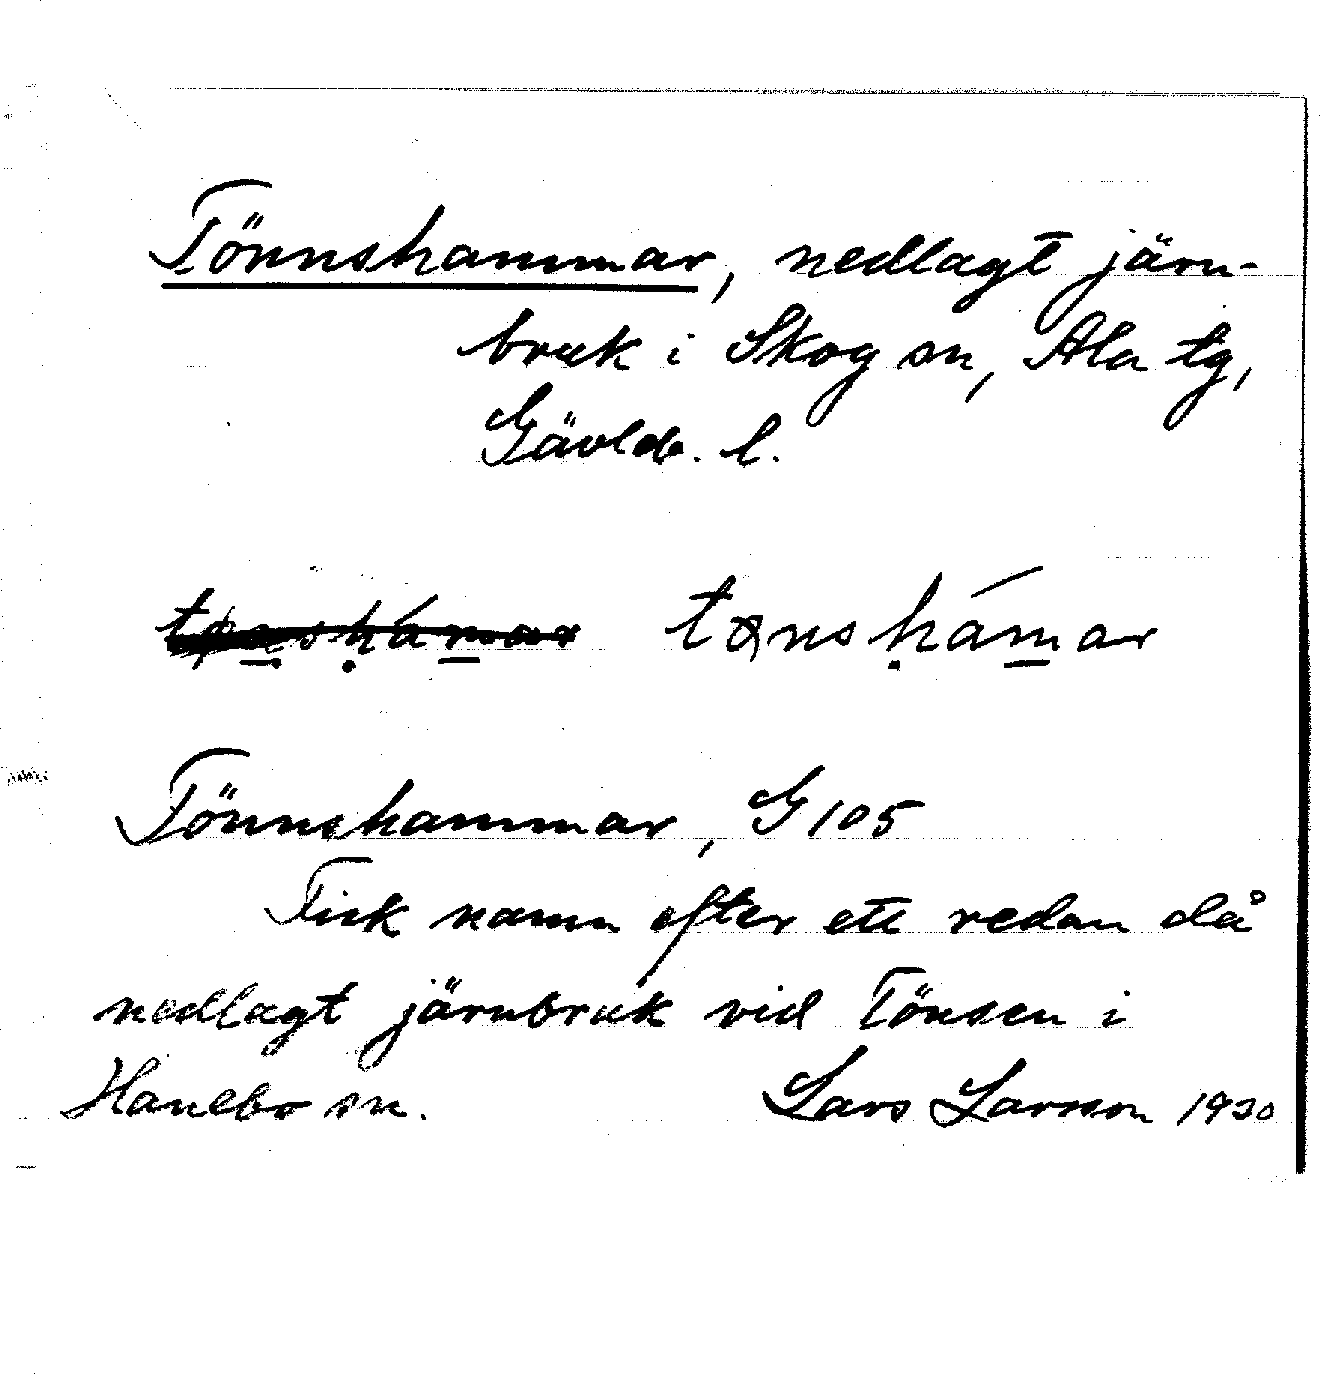 Tönnshammar, nedlagt järn-
bruk i Skog sn, Ala tg,
Gävleb. l.
Tönnshammar, G 105
Fick namn efter ett redan då
nedlagt järnbruk vid Tönsen i
Hanebo sn. Lars Larsson 1930